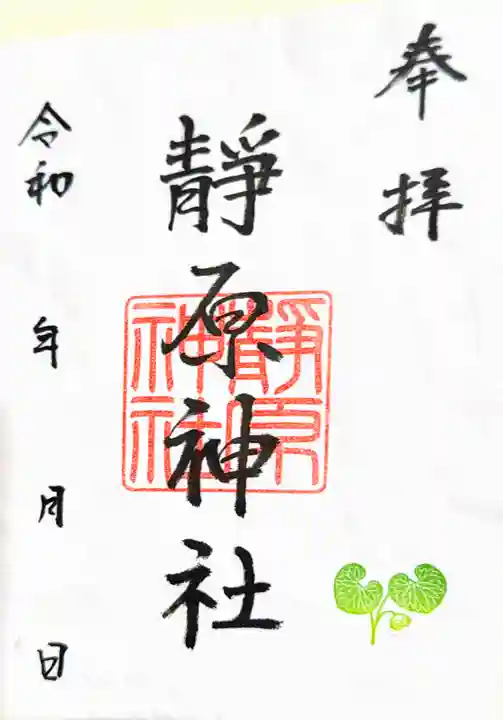 奉拝
靜原神社
靜原神社
令和 年 月 日